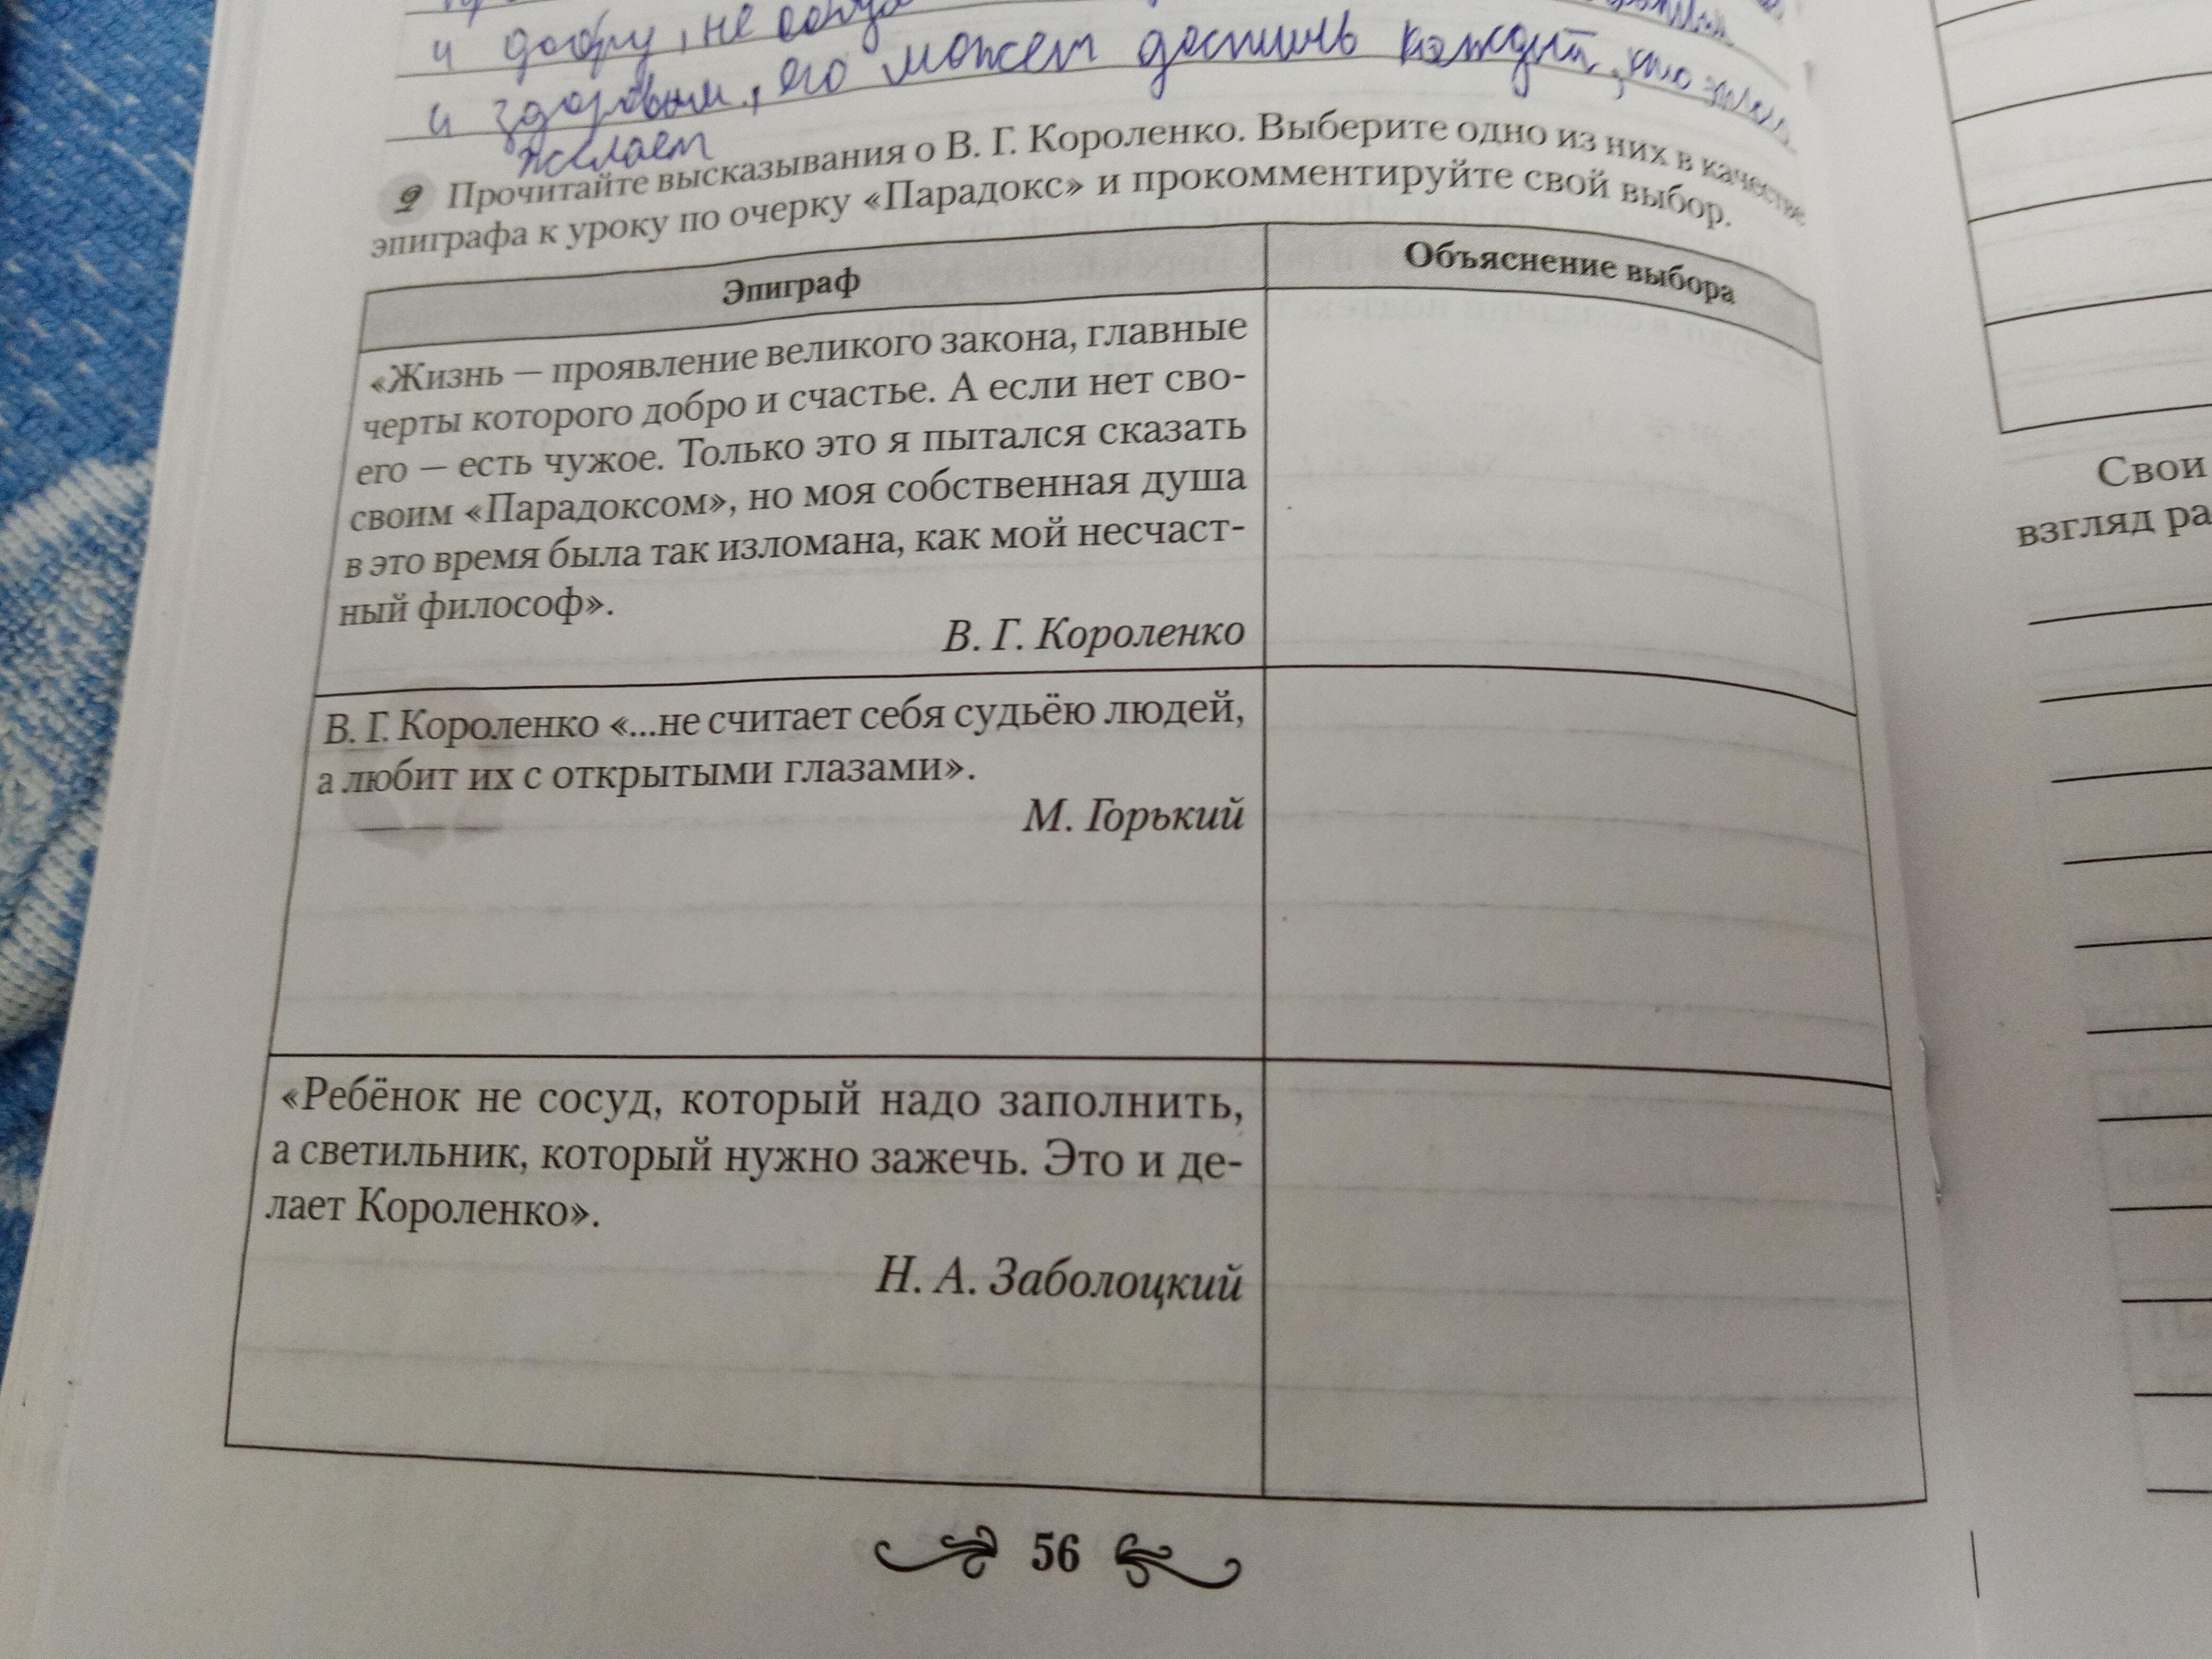 и добру, не
и здоровым, его может достичь каждый, кто
желает
9 Прочитайте высказывания о В. Г. Короленко. Выберите одно из них в качестве
эпиграфа к уроку по очерку «Парадокс» и прокомментируйте свой выбор.
Эпиграф
Объяснение выбора
«Жизнь — проявление великого закона, главные
черты которого добро и счастье. А если нет сво-
его — есть чужое. Только это я пытался сказать
своим «Парадоксом», но моя собственная душа
в это время была так изломана, как мой несчаст-
ный философ».
В. Г. Короленко
В. Г. Короленко «...не считает себя судьёю людей,
а любит их с открытыми глазами».
М. Горький
«Ребёнок не сосуд, который надо заполнить,
а светильник, который нужно зажечь. Это и де-
лает Короленко».
Н. А. Заболоцкий
56
Свои
взгляд ра